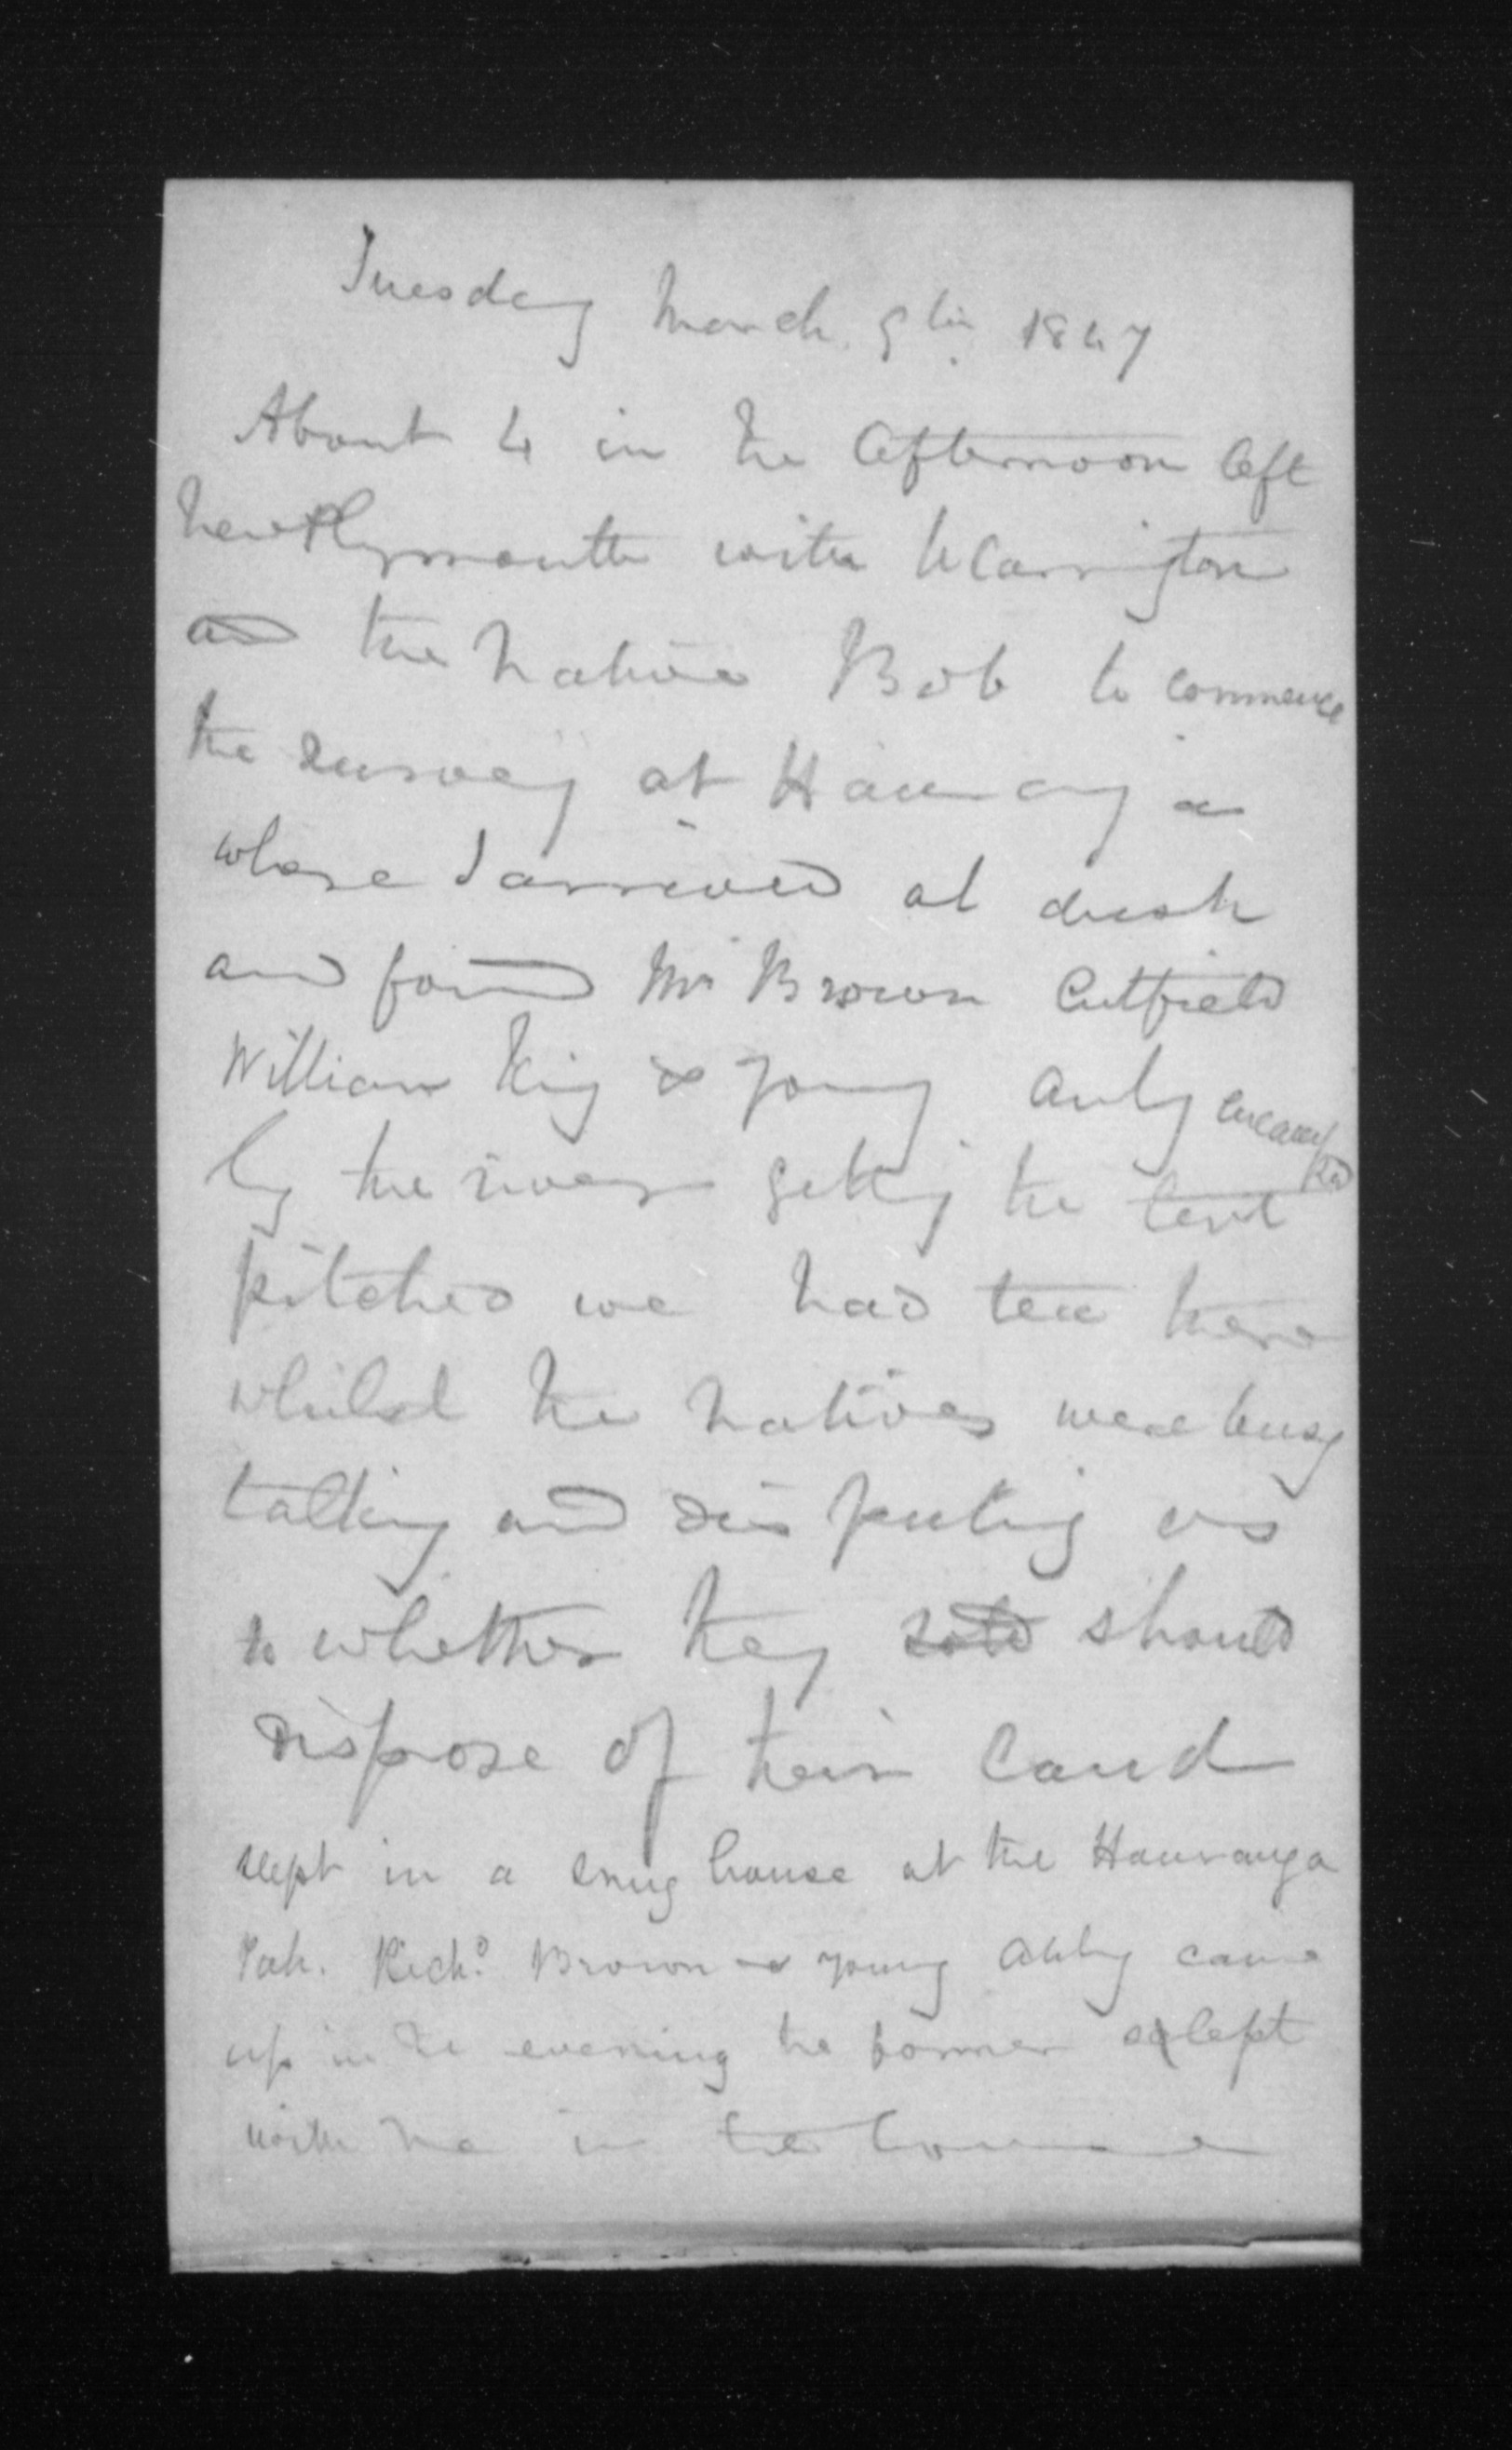 Tuesday March 9th 1847
About 4 in the afternoon left
New Plymouth with W Carrington
and the native Bob to commence
the survey at Hauranga
where I arrived at dusk
and found Mr Brown Cutfield
William King & young Aubrey encamped
by the river getting the tent
pitched we had tea there
whilst the natives were busy
talking and disputing as
to whether they sold should
dispose of their land
slept in a snug house at the Hauranga
Pah. Richd Brown & young
came
up in the evening the former slept
with me in the house